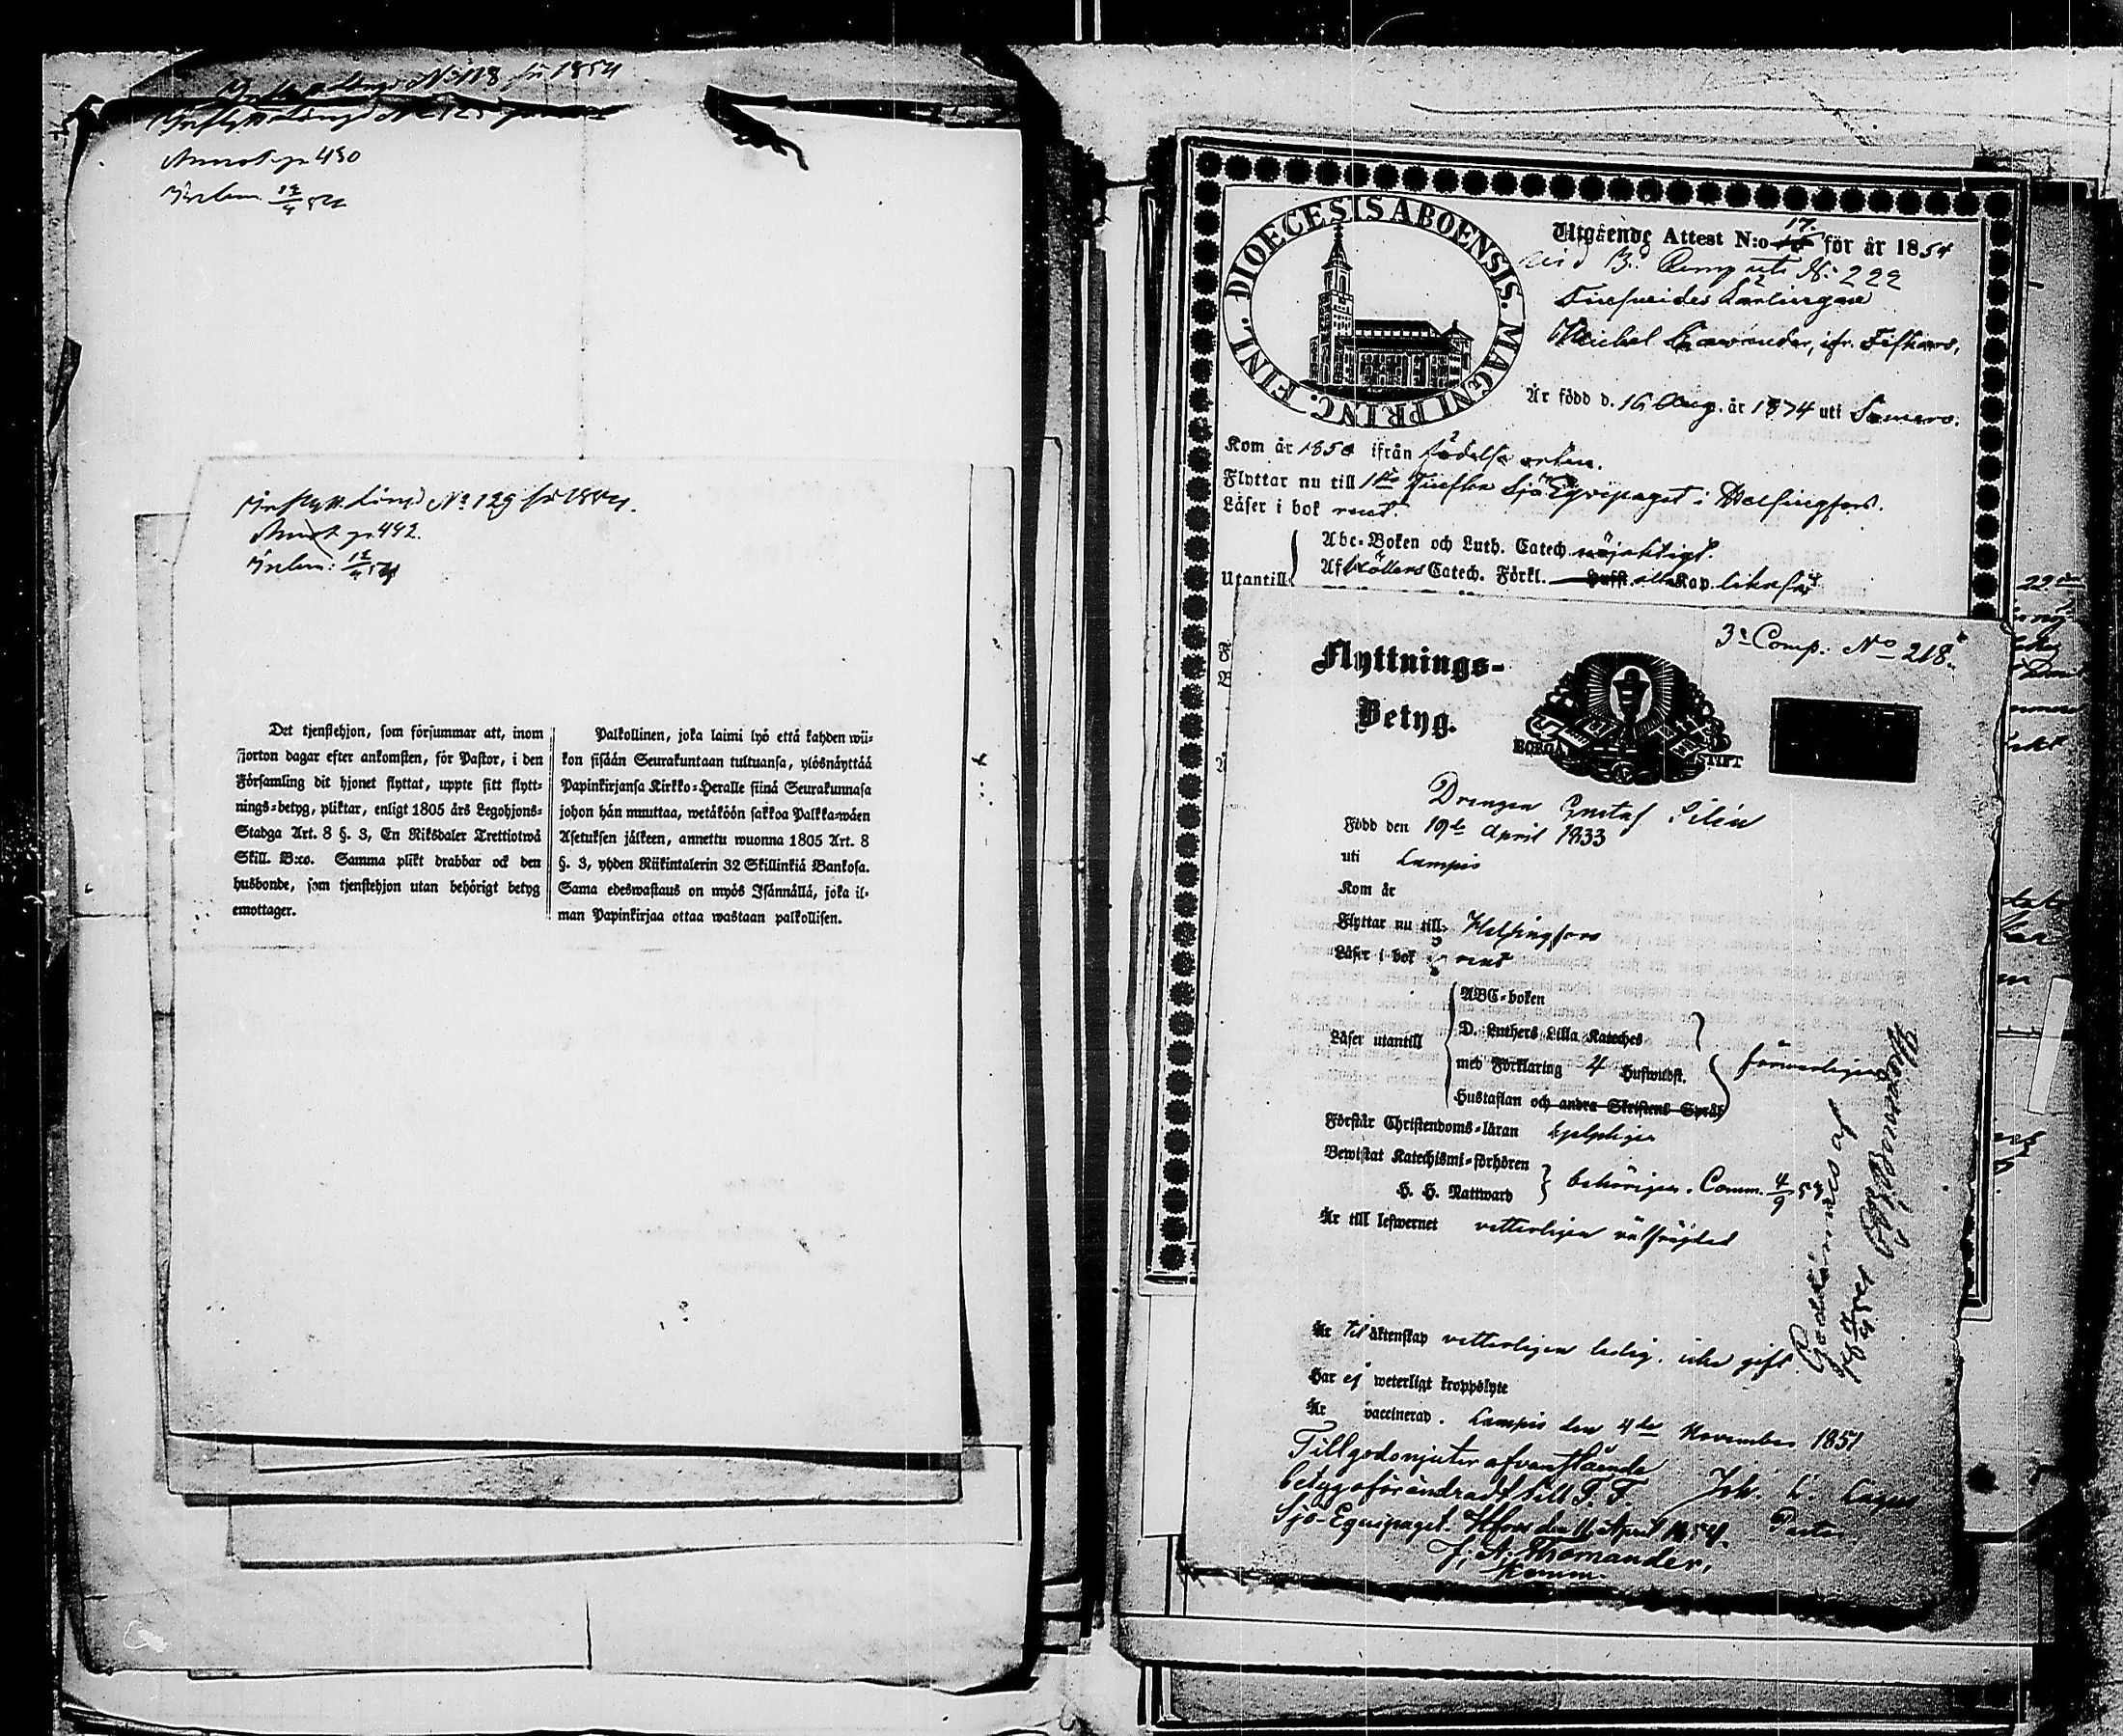 N:o 118 för 1854
Annot. p. 430
Inlem. 12/4 54
Inflyttn. Längd No 129 för 1854.
Annot. p. 442.
Inlem: 12/4 54
Det tjenstehjon, som försummar att, inom
Fjorton dagar efter ankomsten, för Pastor, i den
Församling dit hjonet flyttat, uppte sitt flytt-
nings-betyg, pliktar, enligt 1805 års Legohjons-
Stadga Art. 8 §. 3, En Riksdaler Trettiotwå
Skill. B:co. Samma plikt drabbar ock den
husbonde, som tjenstehjon utan behörigt betyg
emottager.
Palkollinen, joka laimi lyö että kahden wii-
kon sisään Seurakuntaan tultuansa, ylösnäyttää
Papinkirjansa Kirkko-Heralle siinä Seurakunnasa
johon hän muuttaa, wetäköön sakkoa Palkka-wäen
Asetuksen jälkeen, annettu wuonna 1805 Art. 8
§. 3, yhden Riikintalerin 32 Skillinkiä Bankosa.
Sama edeswastaus on myös Isännällä, joka il-
man Papinkirjaa ottaa wastaan palkollisen.
DIOECESIS ABOENSIS. MAGNI PRINC. FINL.
Utgående Attest N:o 17. för år 1854
3:d Comp. No 222
Michel, ifr. Fiskars,
Är född d. 16 Aug. år 1834 uti Somero.
Kom år 1850 ifrån födelse orten.
Flyttar nu till 1sta Finska Sjö Equipaget i Helsingfors.
Läser i bok rent.
Abc-Boken och Luth. Catech nöjaktigt.
Utantill
Af Möllers Catech. Förkl. Hufst. alla Kap. likaså
3e Comp. No 218
Flyttnings-
Betyg.
BORGÅ STIFT
Drengen Gustaf Silén
Född den 19de April 1833
uti Lampis
Kom år
Flyttar nu till Helsingfors
Läser i bok rent
ABC-boken
D. Luthers Lilla Kateches
Läser utantill
med Förklaring 4 Hufwudst. förswarligen
Hustaflan och andra Skriftens Språk
Förstår Christendoms-läran hjelpligen
Bewistat Katechismi-förhören
H. H. Nattward behörigen. Comm. 4/9 53
Är till lefwernet vetterligen välfrejdad
Är till äktenskap vetterligen ledig, icke gift
Har ej weterligt kroppslyte
Är vaccinerad. Lampis den 4de November 1851
Joh. L. Lagus
Pastor
Tillgodonjuter ofvanstående
betyg oförändradt till F. F.
Sjö-Equipaget. Hfors den 11 April 1854.
J. A. Thomander,
Komm.
Godkännes af